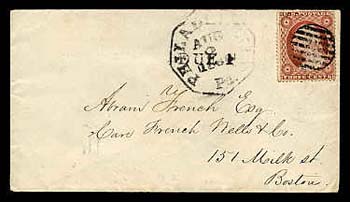 PHILADEL
AUG
Pa.
U.S. POSTAGE
THREE CENTS
Abram French Esq.
Care French Wells & Co.
151 Milk st.
Boston.